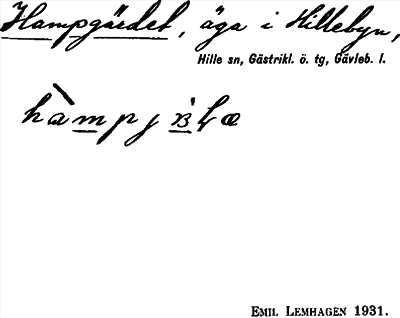 Hampgärdet, äga i Hillebyn,
Hille sn, Gästrikl. ö. tg, Gävleb. l.
EMIL LEMHAGEN 1931.